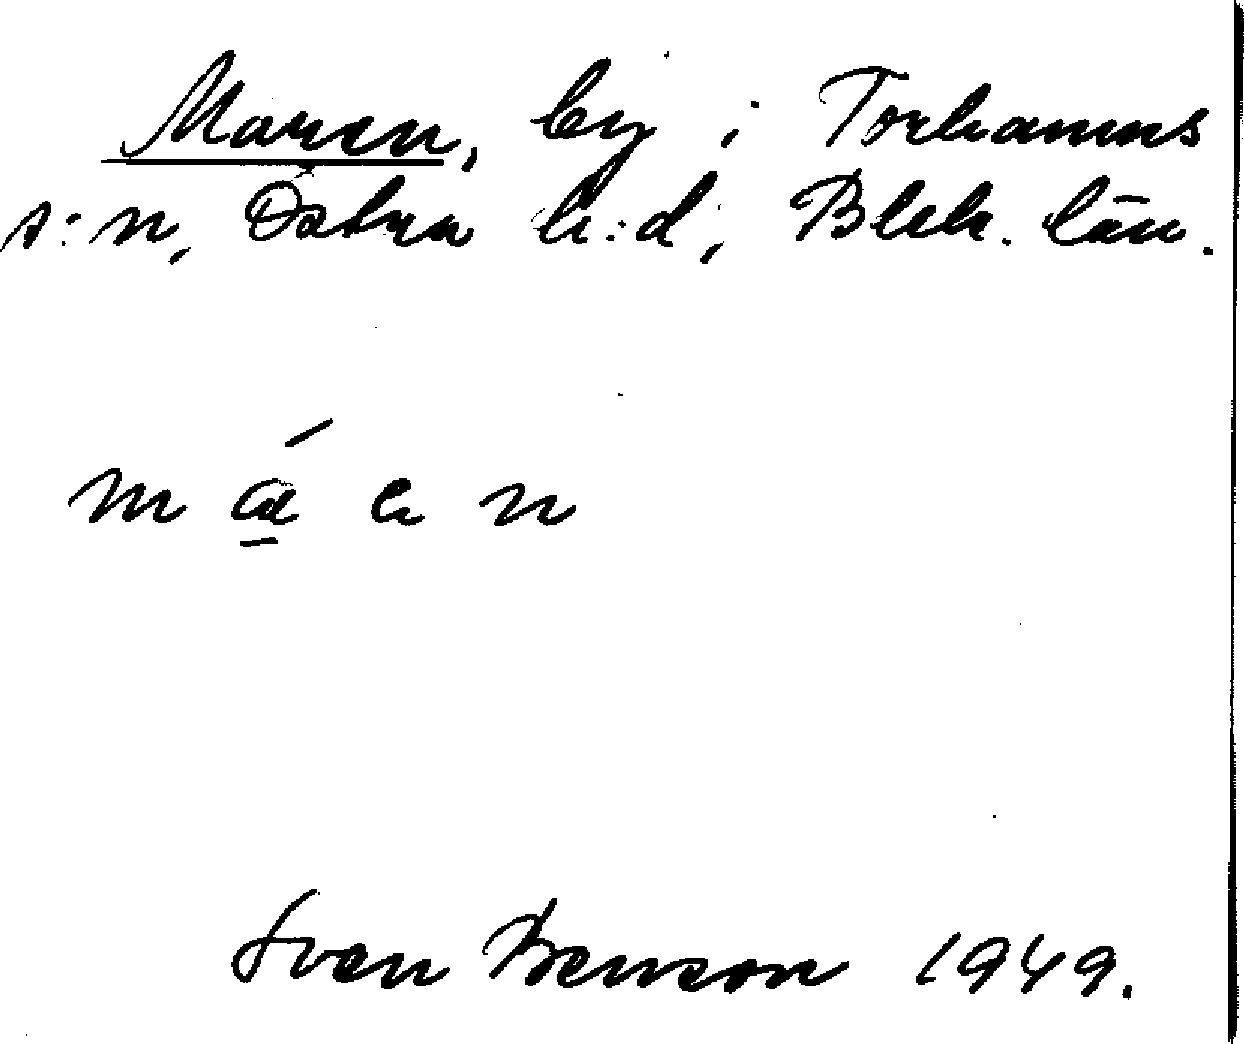 Maren, by i Torhamns
s:n, Östra h:d, Blek. län.
m á e n
Sven Benson 1949.